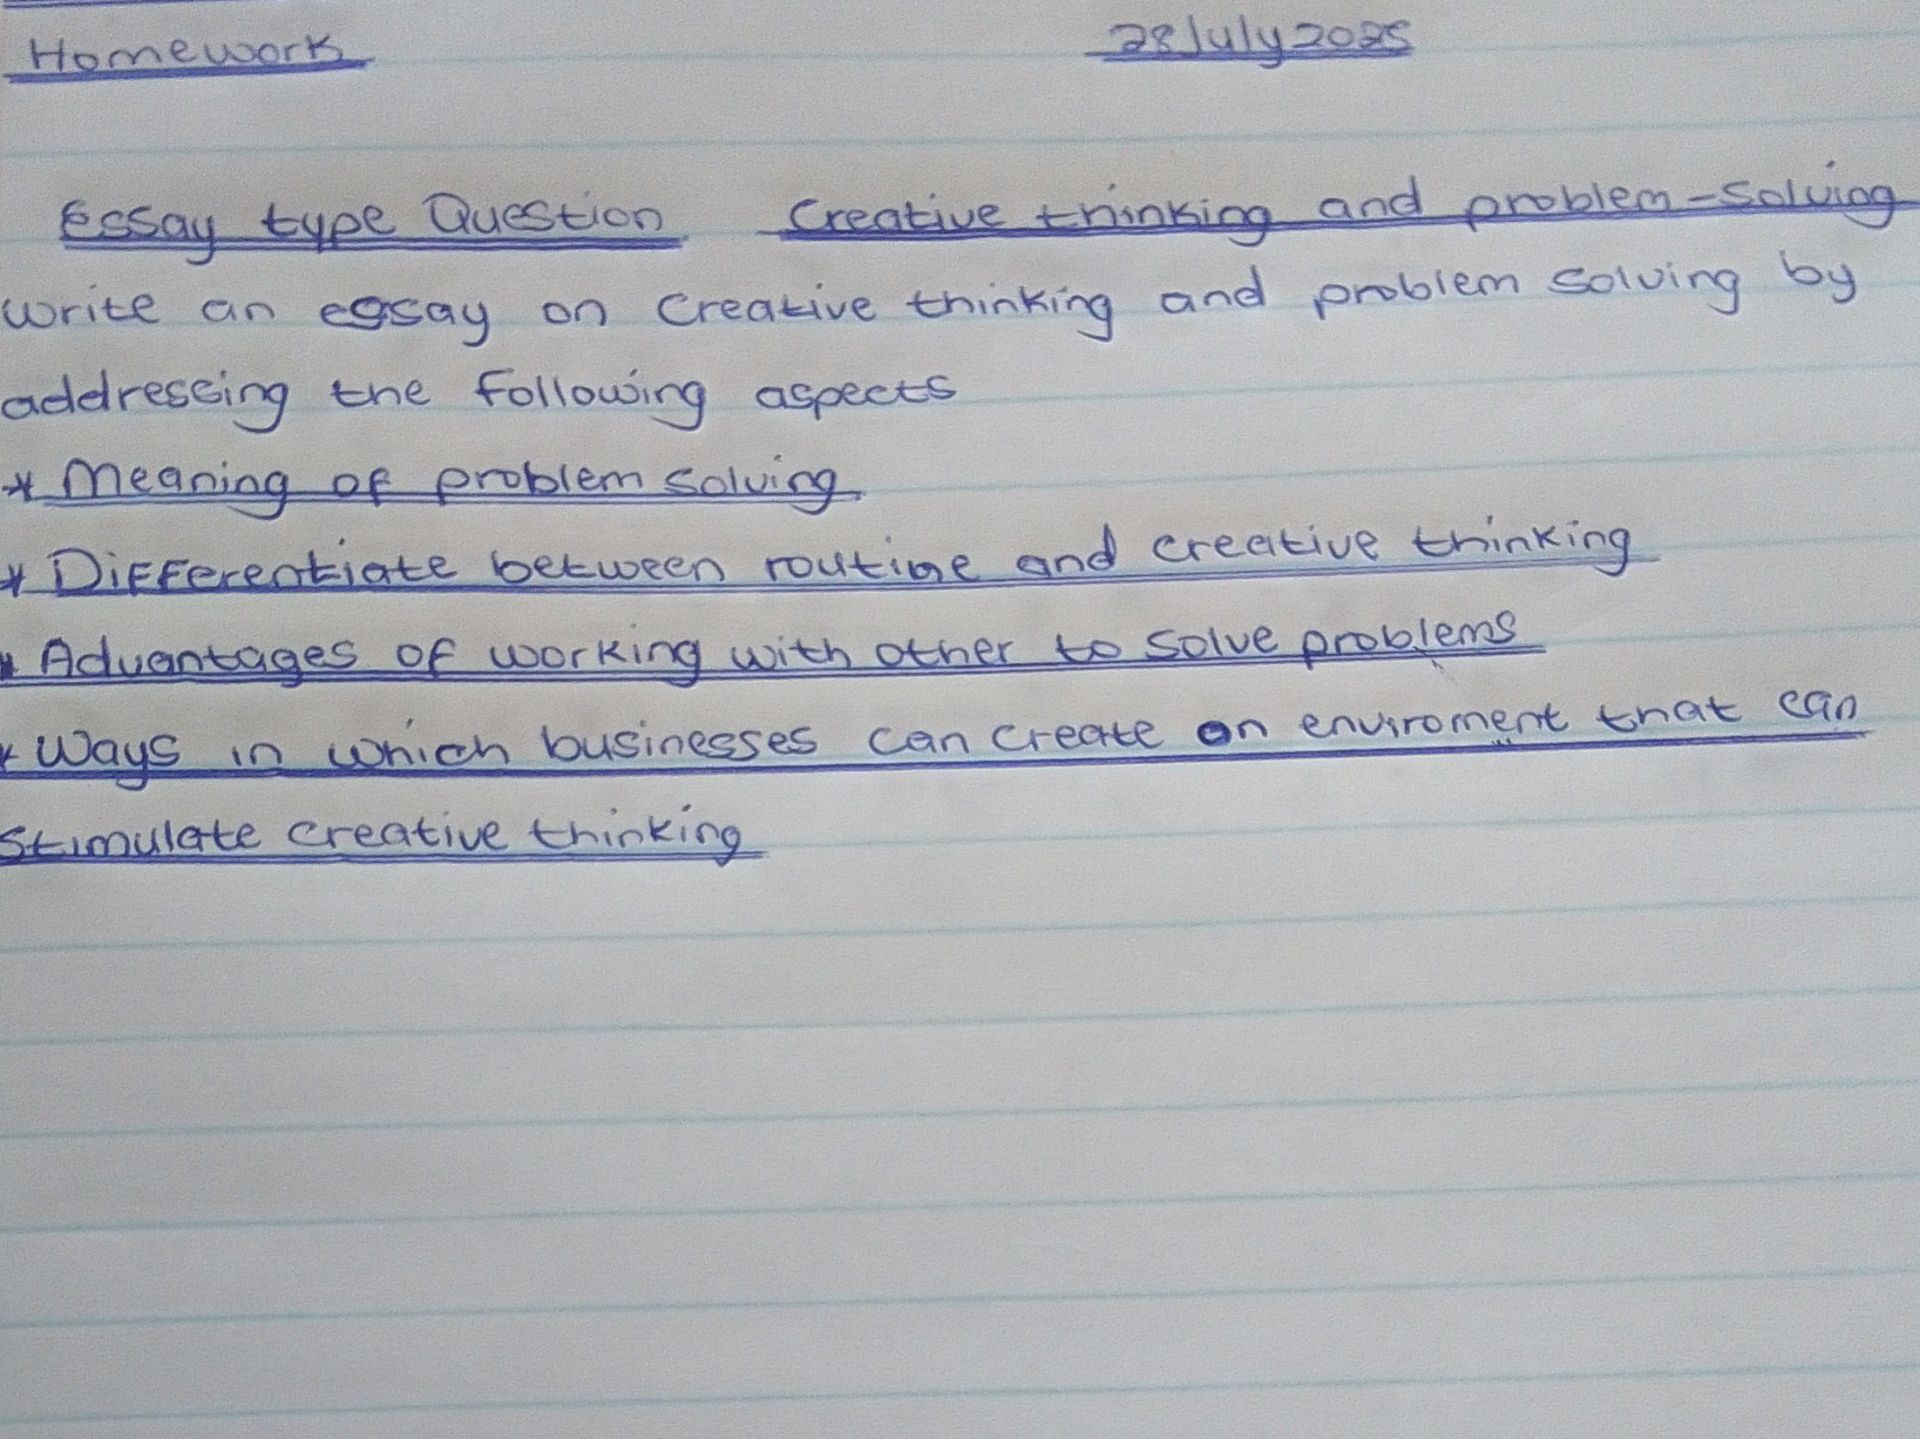 Homework 28 July 2025
Essay type Question Creative thinking and problem-solving
write an essay on creative thinking and problem solving by
addressing the following aspects
* Meaning of problem solving
* Differentiate between routine and creative thinking
* Advantages of working with other to solve problems
* Ways in which businesses can create an enviroment that can
stimulate creative thinking